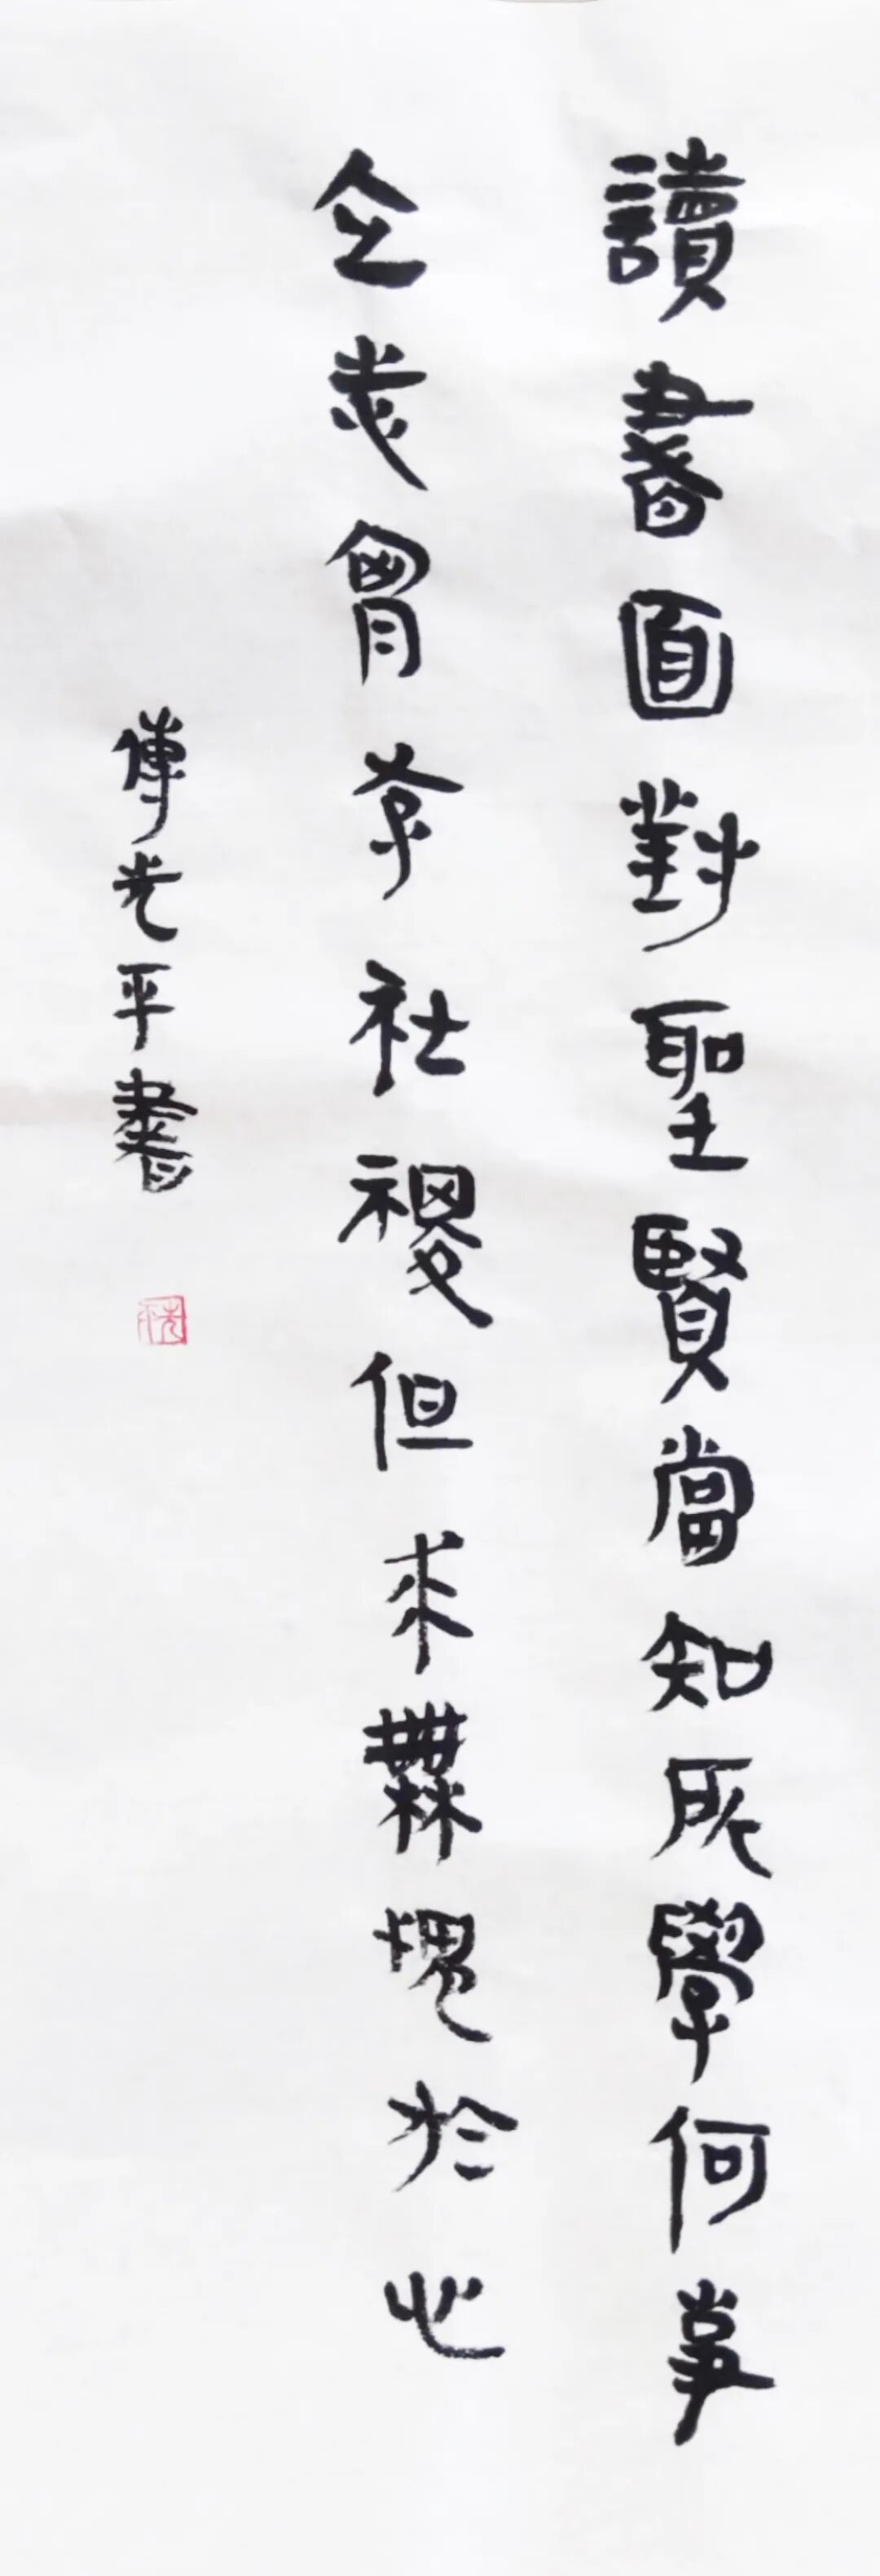 讀書面對聖賢當知所學何事
立志胷存社稷但求無愧於心
傅光平書